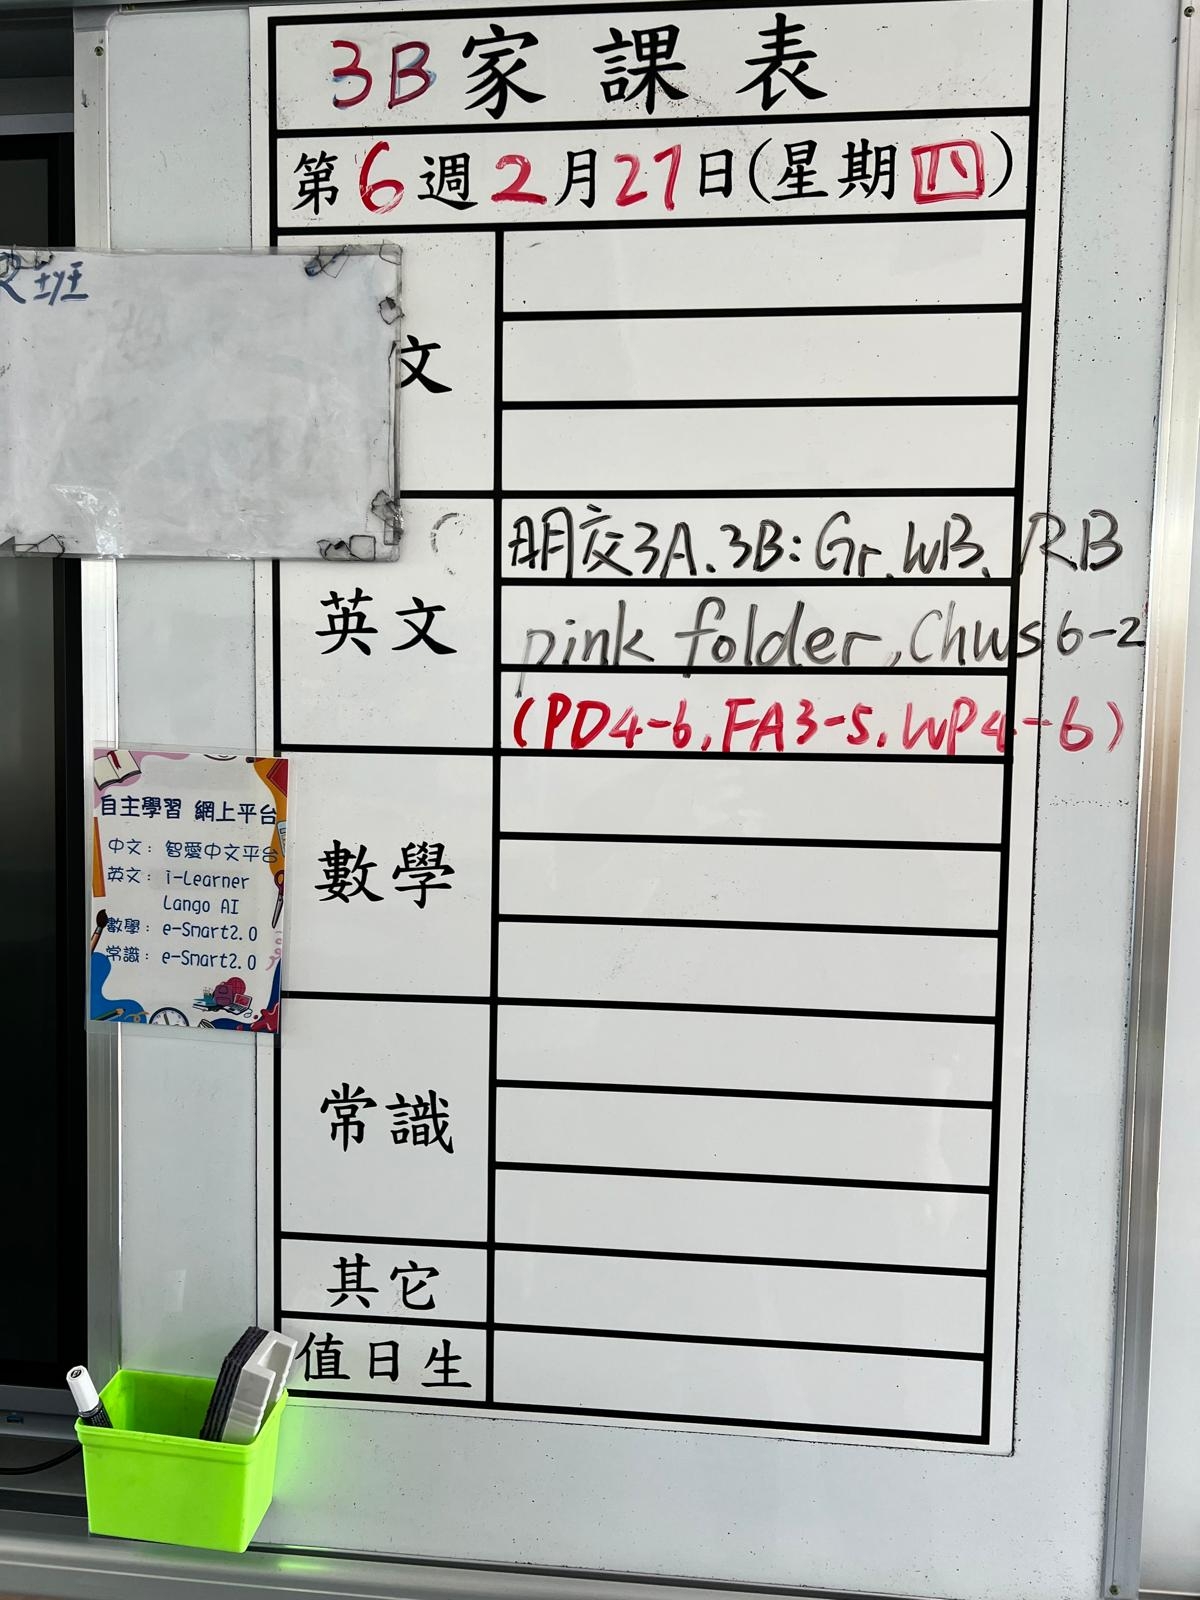 3B 家課表
第6週2月27日(星期四)
班
文
英文
明交3A、3B: Gr. WB、RB
pink folder, Chws 6-2
(PD4-6, FA3-5, WP4-6)
數學
常識
其它
值日生
自主學習 網上平台
中文: 智愛中文平台
英文: i-Learner
Lango AI
數學: e-Smart2.0
常識: e-Smart2.0